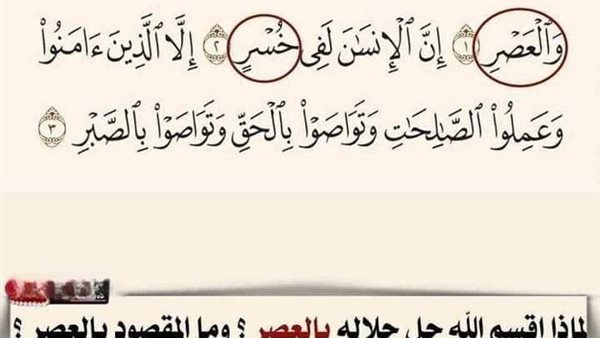 وَٱلْعَصْرِ ١ إِنَّ ٱلْإِنسَٰنَ لَفِى خُسْرٍ ٢ إِلَّا ٱلَّذِينَ ءَامَنُوا۟
وَعَمِلُوا۟ ٱلصَّٰلِحَٰتِ وَتَوَاصَوْا۟ بِٱلْحَقِّ وَتَوَاصَوْا۟ بِٱلصَّبْرِ ٣
لماذا اقسم الله جل جلاله بالعصر ؟ وما المقصود بالعصر ؟